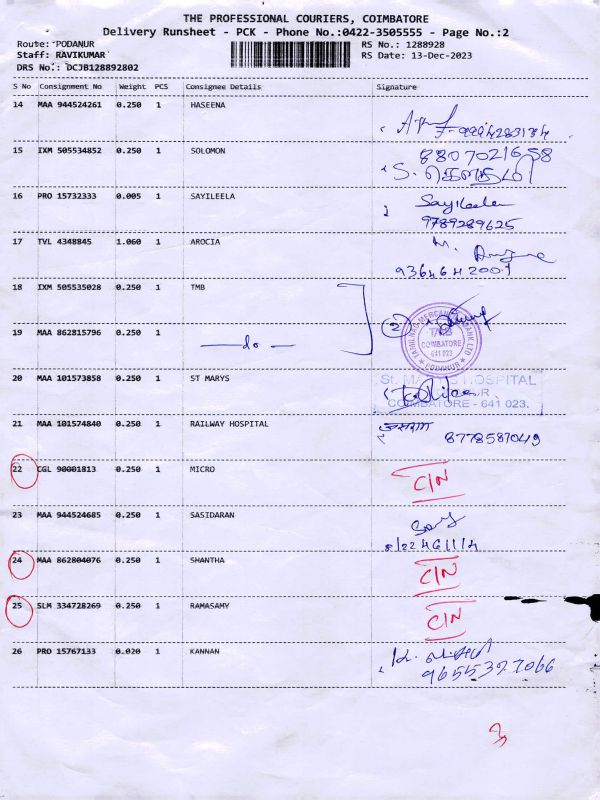 THE PROFESSIONAL COURIERS, COIMBATORE
Delivery Runsheet - PCK - Phone No.:0422-3505555 - Page No.:2
Route: PODANUR RS No.: 1288928
Staff: RAVIKUMAR RS Date: 13-Dec-2023
DRS No.: DCJB128892802
S No Consignment No Weight PCS Consignee Details Signature
14 MAA 944524261 0.250 1 HASEENA
15 IXM 505534852 0.250 1 SOLOMON 8807021658
S. கௌதமி
16 PRO 15732333 0.005 1 SAYILEELA Sayileela
9789289625
17 TVL 4348845 1.060 1 AROCIA M.
9364642007
18 IXM 505535028 0.250 1 TMB
19 MAA 862815796 0.250 1 do 2
TAMILNAD MERCANTILE BANK LTD
TMB
COIMBATORE
641 023
PODANUR
20 MAA 101573858 0.250 1 ST MARYS St. MARY'S HOSPITAL
COIMBATORE - 641 023.
21 MAA 101574840 0.250 1 RAILWAY HOSPITAL 8778587049
22 CGL 90001813 0.250 1 MICRO C/N
23 MAA 944524685 0.250 1 SASIDARAN
24 MAA 862804076 0.250 1 SHANTHA C/N
25 SLM 334728269 0.250 1 RAMASAMY C/N
26 PRO 15767133 0.020 1 KANNAN K.
9655397066